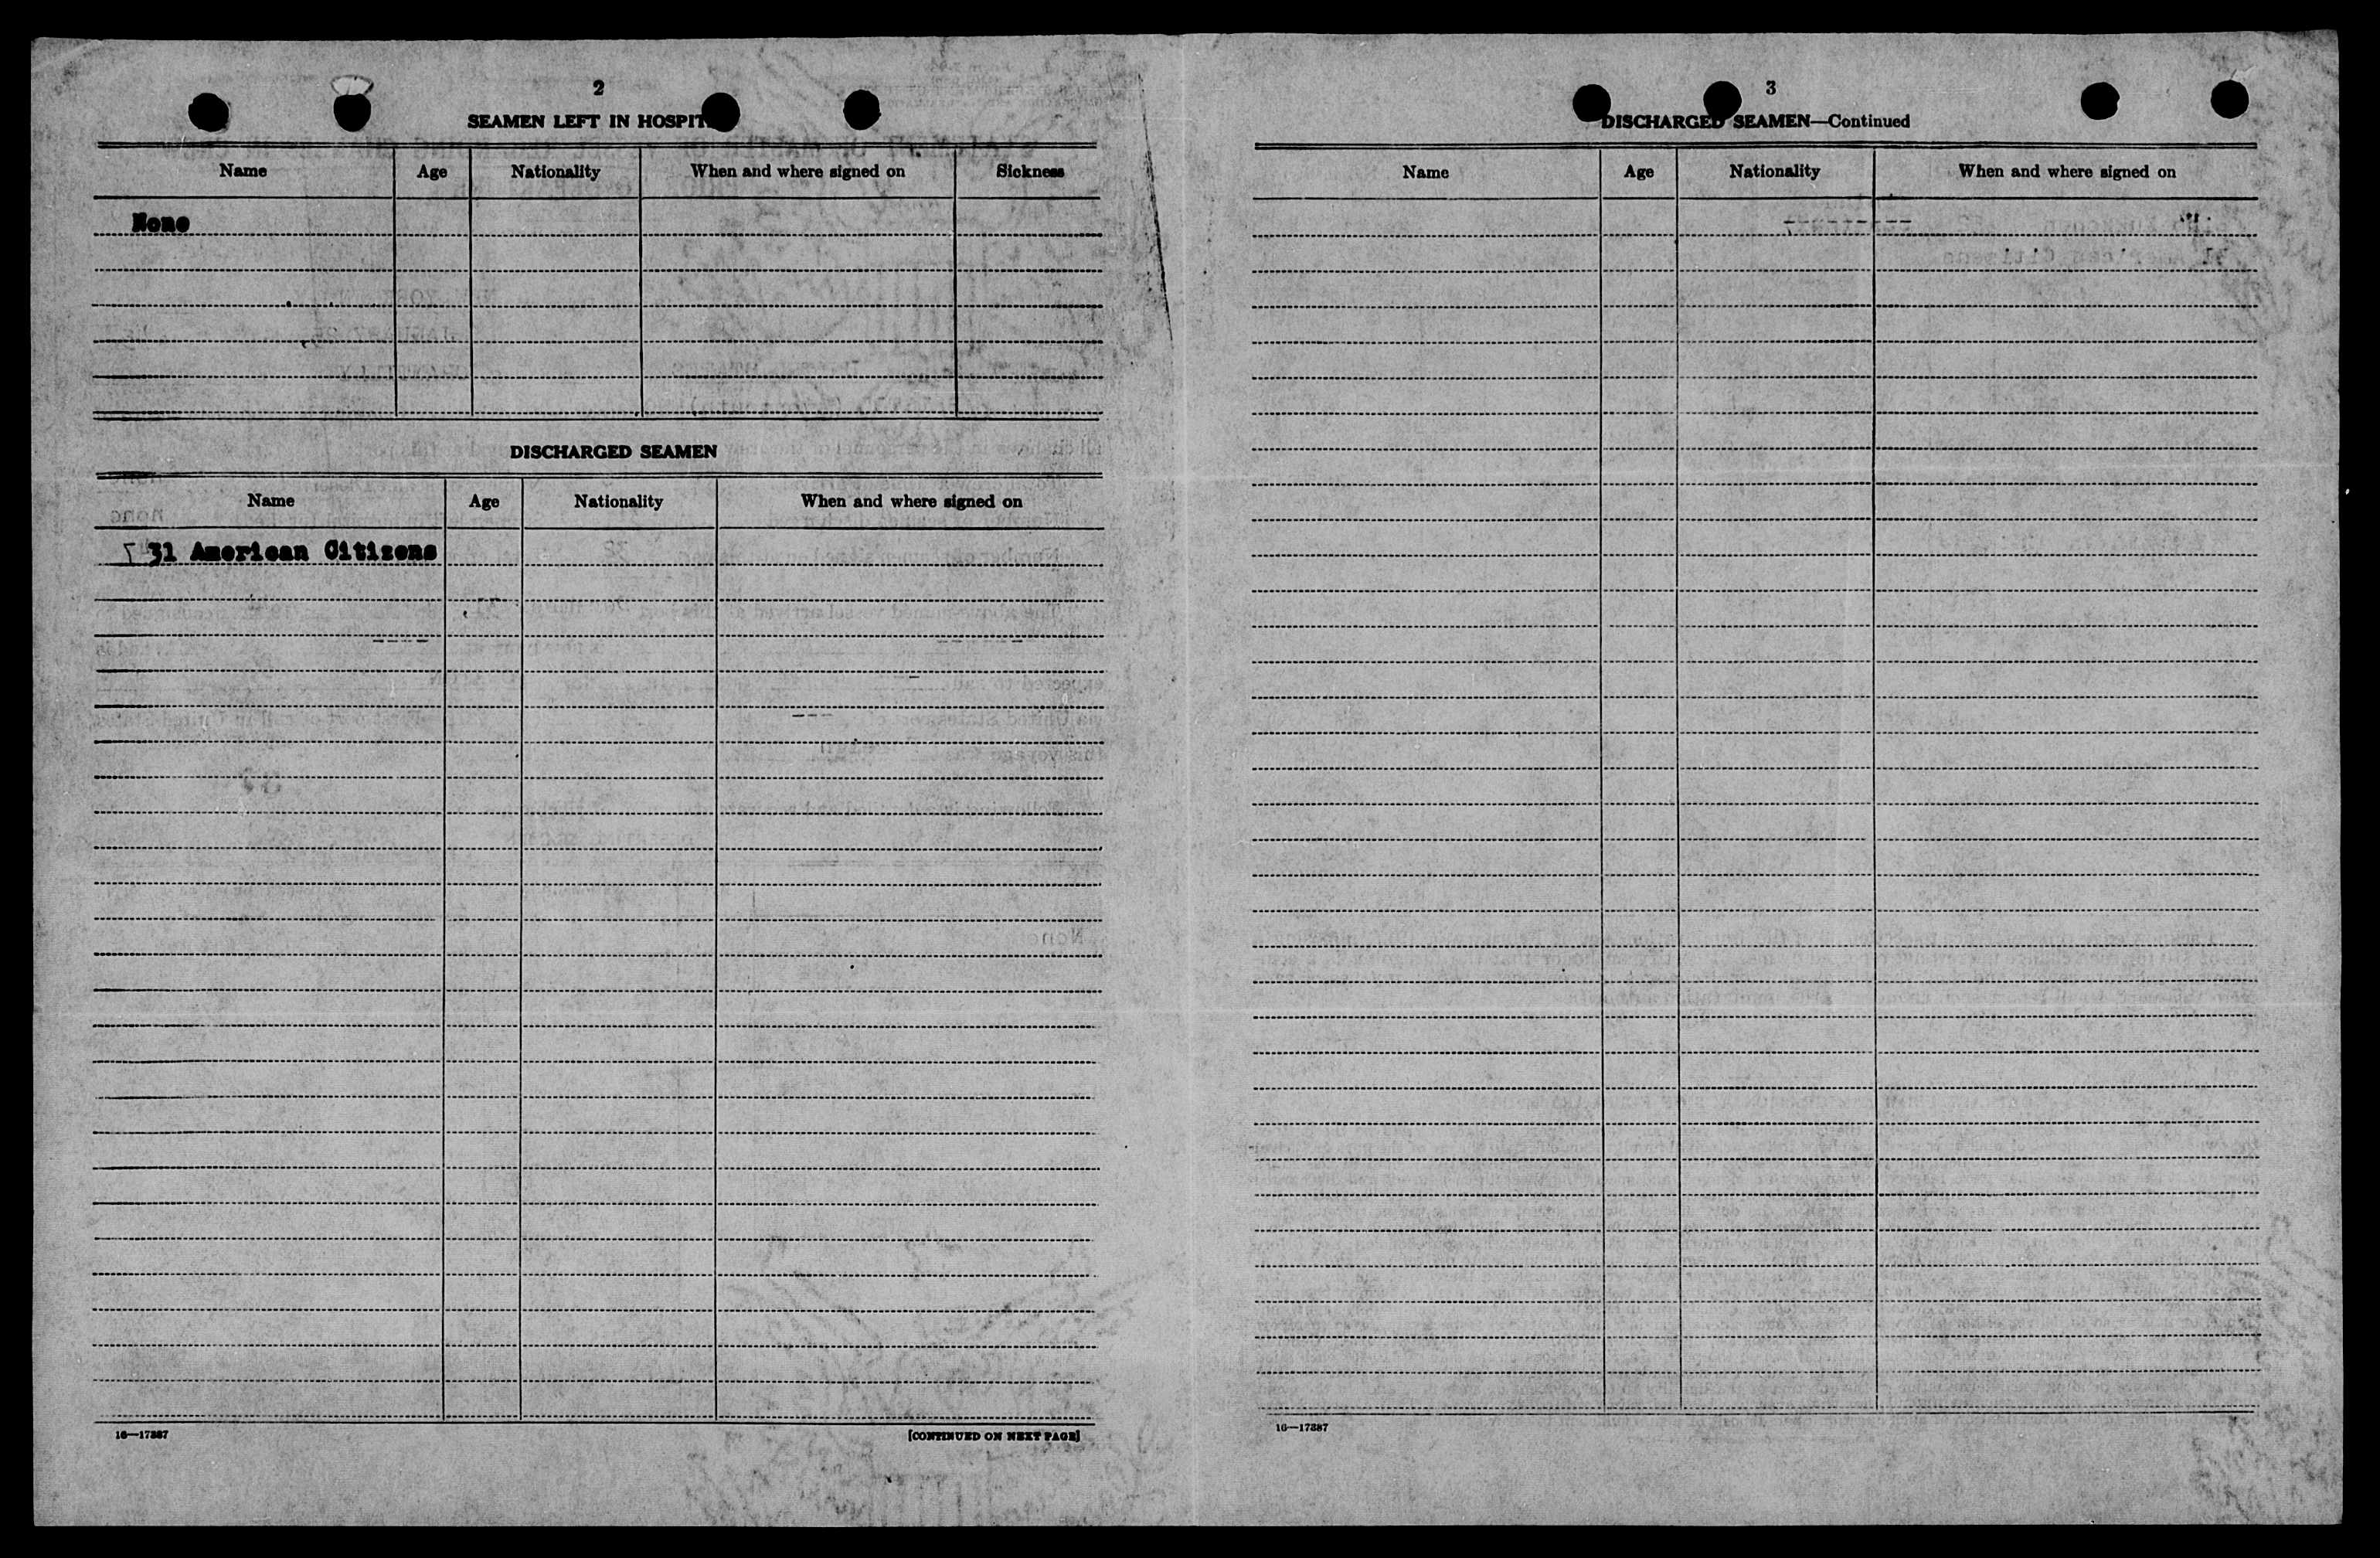 2
SEAMEN LEFT IN HOSPIT
Name Age Nationality When and where signed on Sickness
None
DISCHARGED SEAMEN
Name Age Nationality When and where signed on
31 American Citizens
16—17387
[CONTINUED ON NEXT PAGE]
3
DISCHARGED SEAMEN—Continued
Name Age Nationality When and where signed on
16—17387